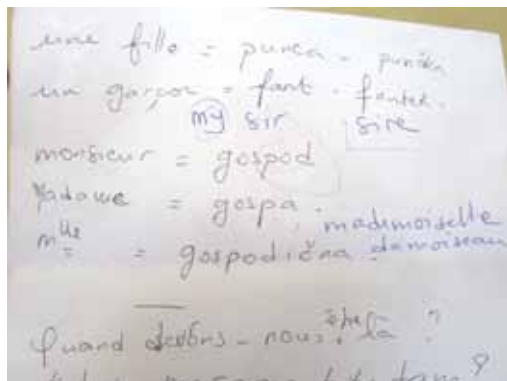 une fille = punca - punčka
un garçon = fant - fantek.
my sir sire
monsieur = gospod
Madame = gospa.
mademoiselle
Mlle = gospodična damoiseau
Quand devons-nous être là ?